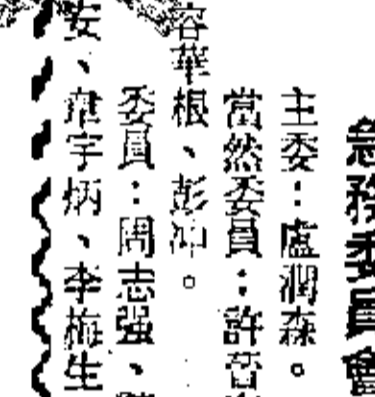 急務委員會
主委：盧潤森。
當然委員：許
容華根、彭冲。
委員：周志强、
安、韋宇炳、李梅生